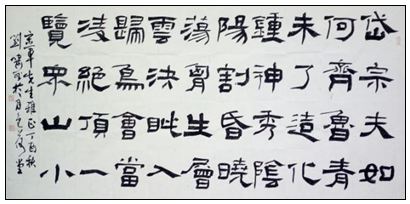 岱宗夫如
何齊魯青
未了造化
鍾神秀陰
陽割昏曉
蕩胷生層
雲決眦入
歸鳥會當
凌絕頂一
覽衆山小
先生雅正丁酉秋
劉於堂